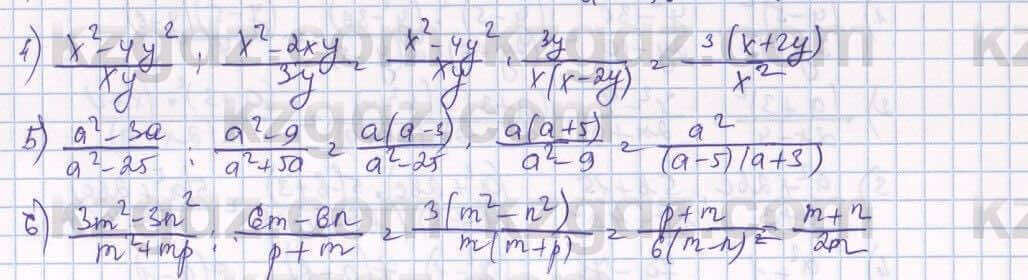 4) x²-4y²/xy : x²-2xy/3y = x²-4y²/xy · 3y/x(x-2y) = 3(x+2y)/x²
5) a²-3a/a²-25 : a²-9/a²+5a = a(a-3)/a²-25 · a(a+5)/a²-9 = a²/(a-5)(a+3)
6) 3m²-3n²/m²+mp : 6m-6n/p+m = 3(m²-n²)/m(m+p) = p+m/6(m-n) = m+n/2m